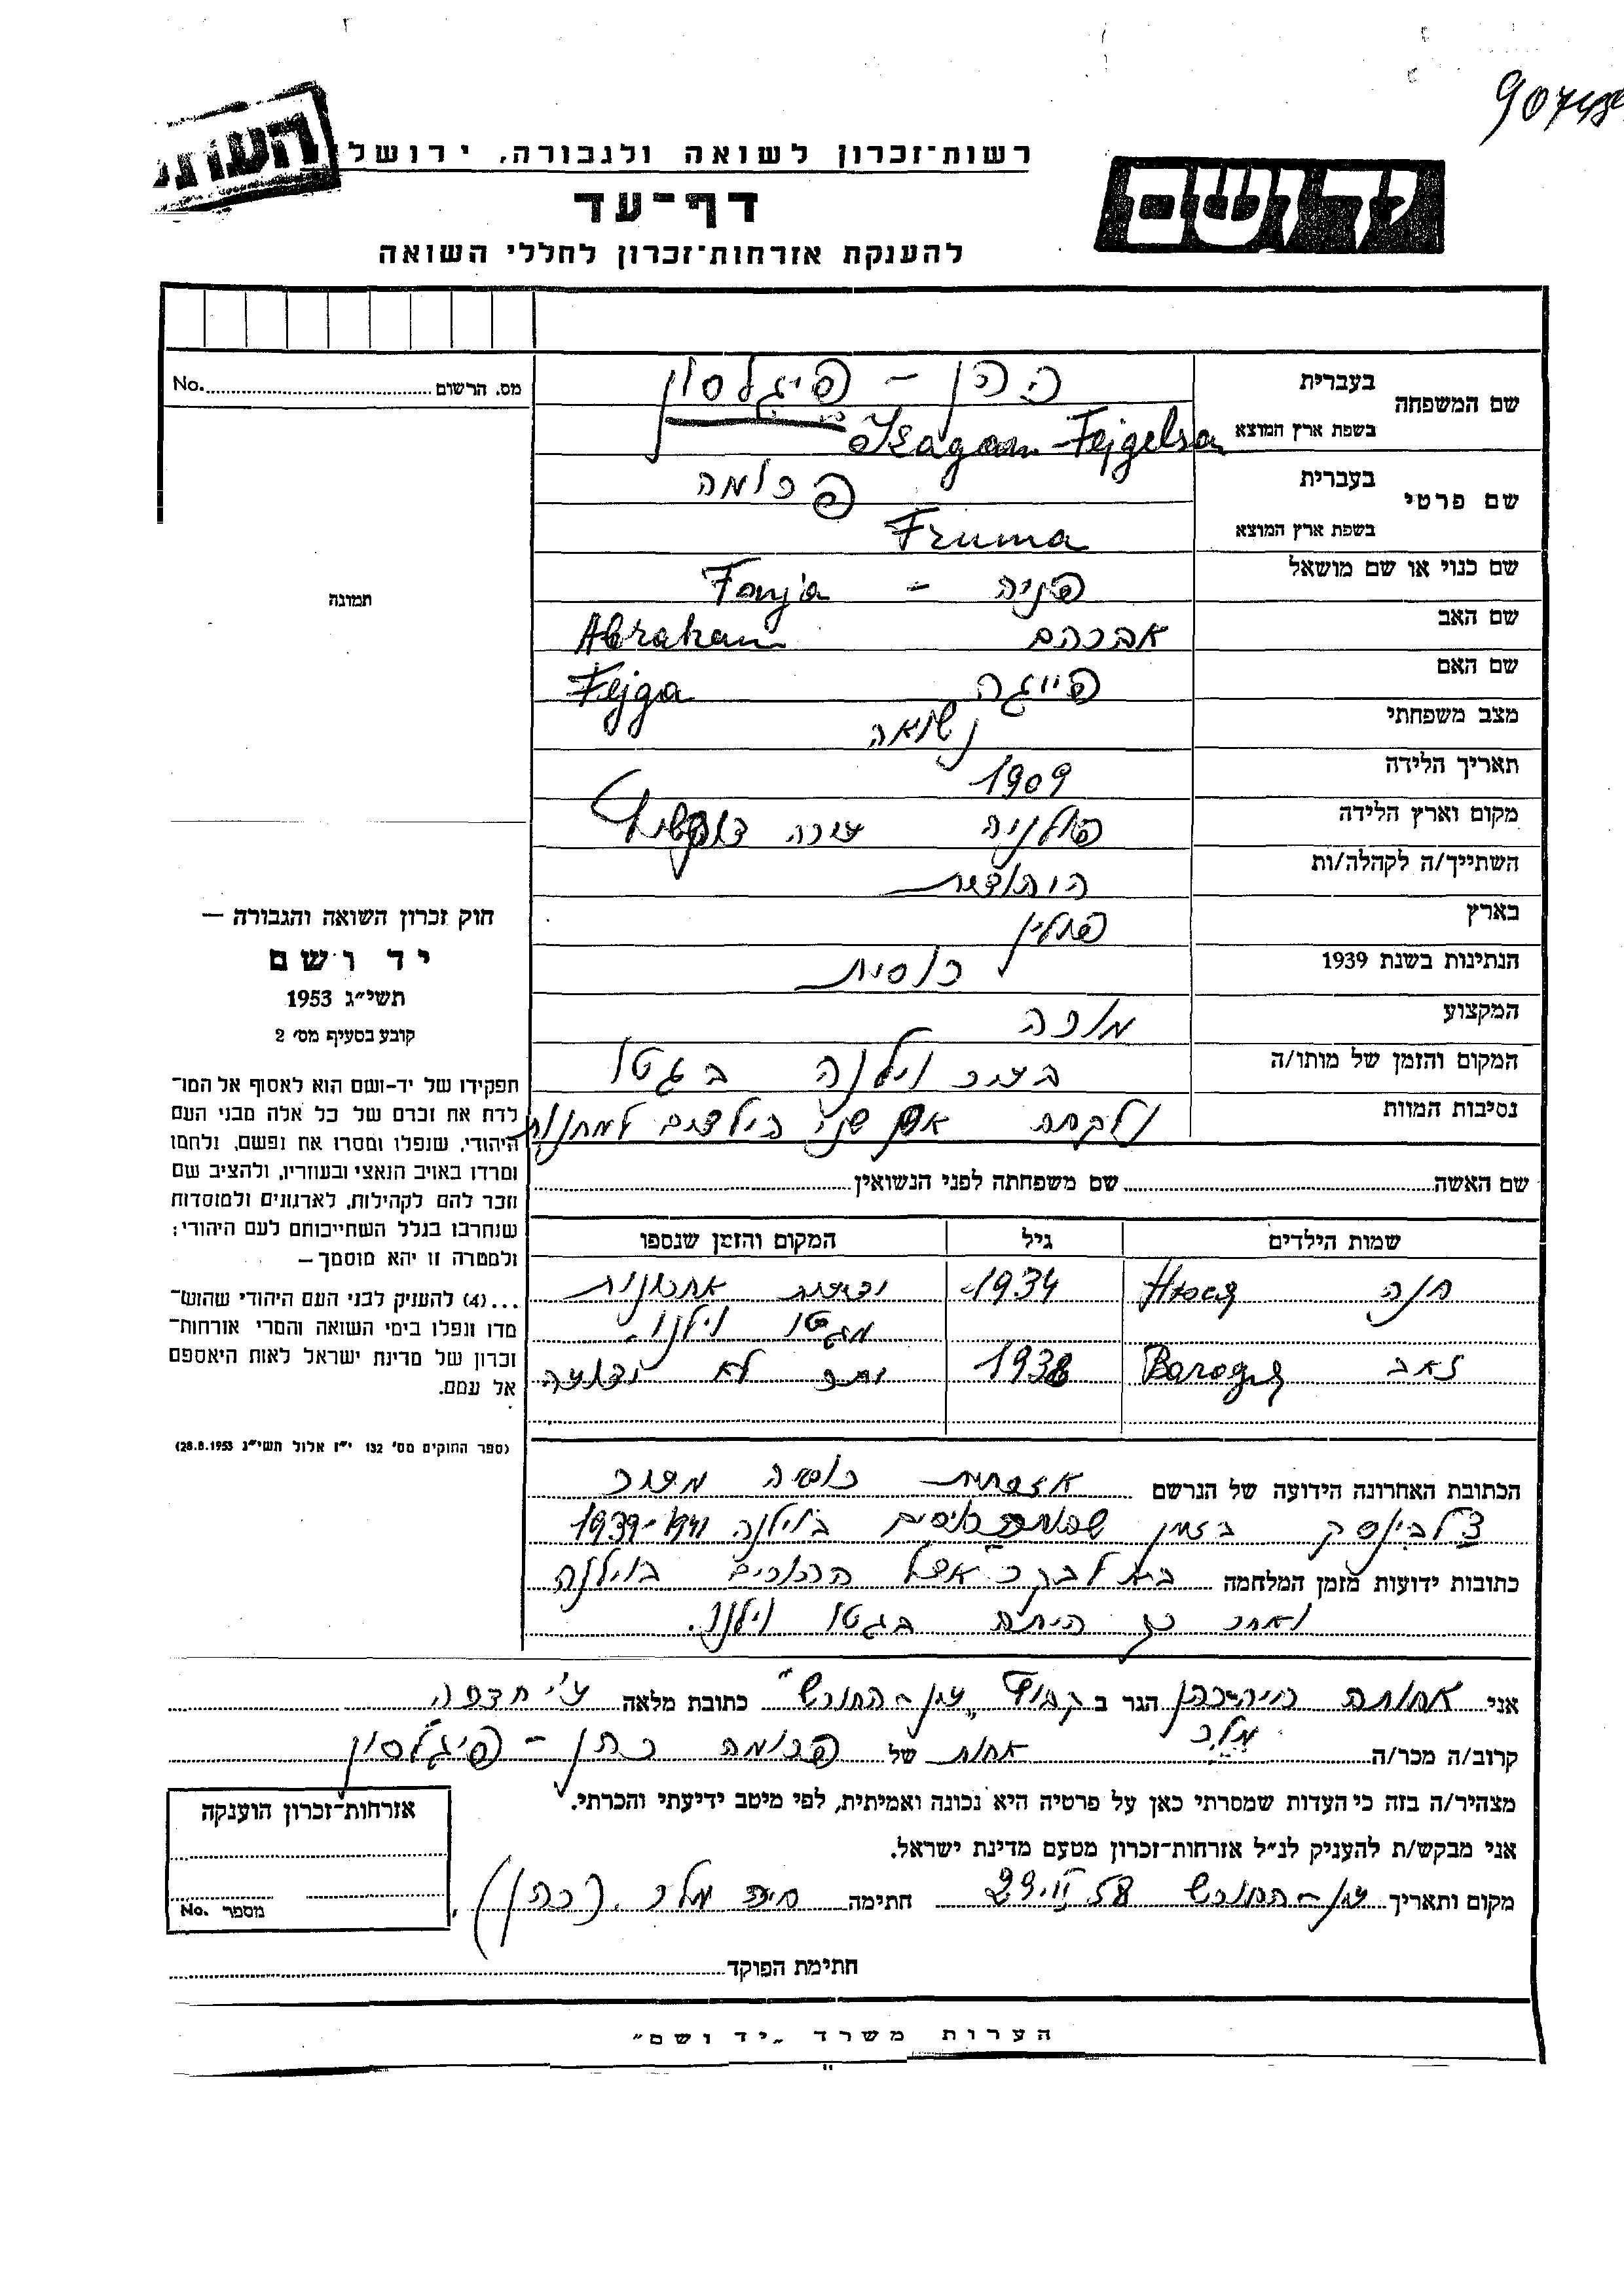 907
העת
רשות־זכרון לשואה ולגבורה, ירושל
יד ושם
דף־עד
להענקת אזרחות־זכרון לחללי השואה
No. מס. הרשום
תמונה
חוק זכרון השואה והגבורה —
יד ושם
תשי״ג 1953
קובע בסעיף מס׳ 2
תפקידו של יד-ושם הוא לאסוף אל המו־
לדת את זכרם של כל אלה מבני העם
היהודי, שנפלו ומסרו את נפשם, נלחמו
ומרדו באויב הנאצי ובעוזריו, ולהציב שם
וזכר להם לקהילות, לארגונים ולמוסדות
שנחרבו בגלל השתייכותם לעם היהודי;
ולמטרה זו יהא מוסמך —
...(4) להעניק לבני העם היהודי שהוש־
מדו ונפלו בימי השואה והמרי אזרחות־
זכרון של מדינת ישראל לאות היאספם
אל עמם.
(ספר החוקים מס׳ 132 י״ז אלול תשי״ג 28.8.1953)
שם המשפחה בעברית כהן – פיגלסון
בשפת ארץ המוצא Kagan-Fejgelson
שם פרטי בעברית פרומה
בשפת ארץ המוצא Fruma
שם כנוי או שם מושאל פניה – Fanja
שם האב אברהם Abraham
שם האם פייגה Fejga
מצב משפחתי נשואה
תאריך הלידה 1909
מקום וארץ הלידה פולניה
השתייך/ה לקהלה/ות היהודית
בארץ פולין
הנתינות בשנת 1939 רוסית
המקצוע מורה
המקום והזמן של מותו/ה בעיר וילנה בגטו
נסיבות המוות נלקחה עם שני הילדים למחנות
שם האשה שם משפחתה לפני הנשואין
שמות הילדים גיל המקום והזמן שנספו
חנה 1934 ידיעות אחרונות
מגטו וילנו.
זאב 1938 יותר לא ידועה
הכתובת האחרונה הידועה של הנרשם אזרחית רוסיה מעיר
צ'לבינסק בזמן בוילנה 1939-1941
כתובות ידועות מזמן המלחמה בא לבקר אצל ההורים בוילנה
ואחר כך היתה בגטו וילנו.
אני אחותה חיה כהן מלר הגר ב קבוץ "עין-החורש" כתובת מלאה ע״י חדרה
קרוב/ה מכר/ה אחות של פרומה כהן – פיגלסון
מצהיר/ה בזה כי העדות שמסרתי כאן על פרטיה היא נכונה ואמיתית, לפי מיטב ידיעתי והכרתי.
אני מבקש/ת להעניק לנ״ל אזרחות־זכרון מטעם מדינת ישראל.
מקום ותאריך עין-החורש 58 חתימה חיה מלר (כהן)
אזרחות־זכרון הוענקה
מספר No.
חתימת הפוקד
הערות משרד „יד ושם״